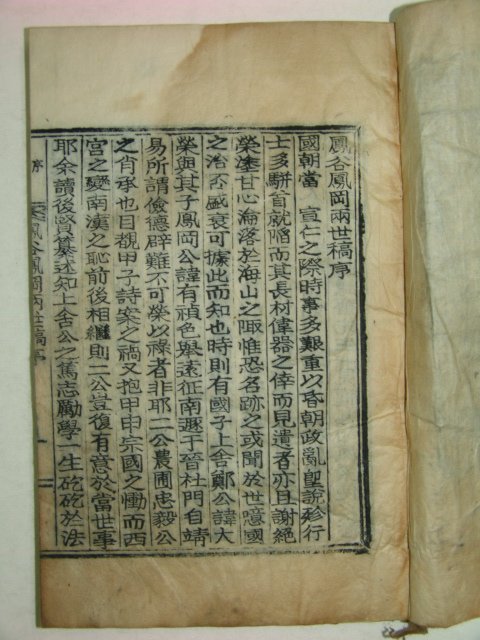 鳳谷鳳岡兩世稿序
國朝當　宣仁之際時事多艱重以昏朝政亂聖說殄行
士多騈首就陷而其長材偉器之倖而見遺者亦且謝絶
榮塗甘心淪落於海山之陬惟恐名跡之或聞於世噫國
之治否盛衰可據此而知也時則有國子上舍鄭公諱大
榮與其子鳳岡公諱有禎色擧遠征南遯于晉杜門自靖
易所謂儉德辟難不可榮以祿者非耶二公農圃忠毅公
之肖承也目覩甲子詩案之禍又抱甲申宗國之慟而西
宮之變南漢之恥前後相繼則二公豈復有意於當世事
耶余讀後賢纂述知上舍公之篤志勵學一生矻矻於法
鳳谷鳳岡兩世稿序
序
一